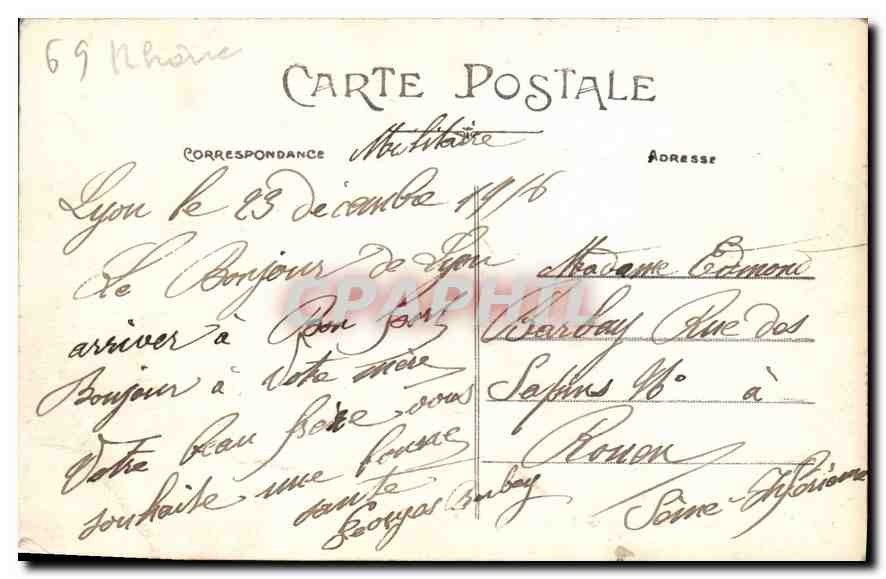 69 Rhône
CARTE POSTALE
CORRESPONDANCE Militaire ADRESSE
Lyon le 23 décembre 1916
Le Bonjour de Lyon
arriver à Bon port
Bonjour à Votre mère
Votre beau frère vous
souhaite une bonne
santé
Georges Barbay
Madame Edmond
Barbay Rue des
Sapins No à
Rouen
Seine-Inférieure
CPAPHIL